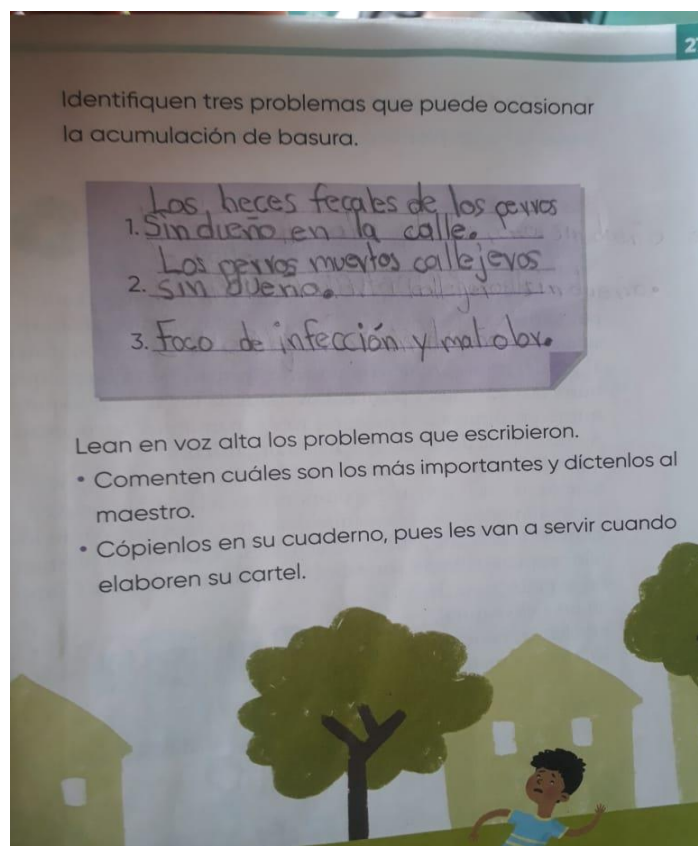 2
Identifiquen tres problemas que puede ocasionar
la acumulación de basura.
Las heces fecales de los perros
1. Sin dueño en la calle.
Los perros muertos callejeros
2. sin dueño.
3. Foco de infección y mal olor.
Lean en voz alta los problemas que escribieron.
• Comenten cuáles son los más importantes y díctenlos al
maestro.
• Cópienlos en su cuaderno, pues les van a servir cuando
elaboren su cartel.